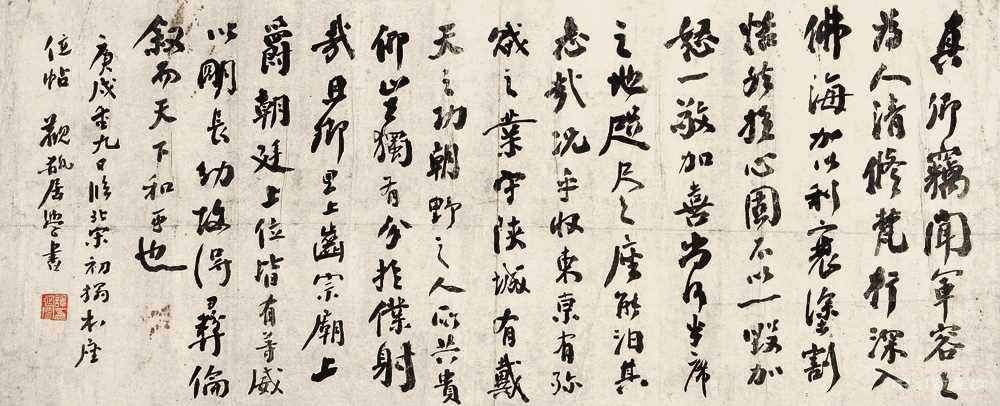 真卿竊聞軍容之
為人清修梵行深入
佛海加以利衰塗割
恬然於心固不以一毀加
怒一敬加喜尚何半席
之地咫尺之座能汩其
志哉況乎收東京有殄
賊之業守陝城有戴
天之功朝野之人所共貴
仰豈獨有分於僕射
哉且鄉里上齒宗廟上
爵朝廷上位皆有等威
以明長幼故得彝倫
敘而天下和平也
庚戌重九日臨北宋初搨本座
位帖 居學書